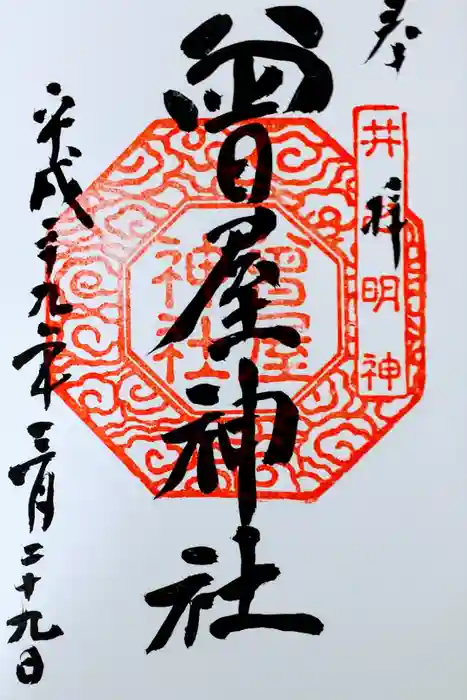 奉拝
井手明神
曽屋神社
曽屋神社
平成二十九年三月二十九日